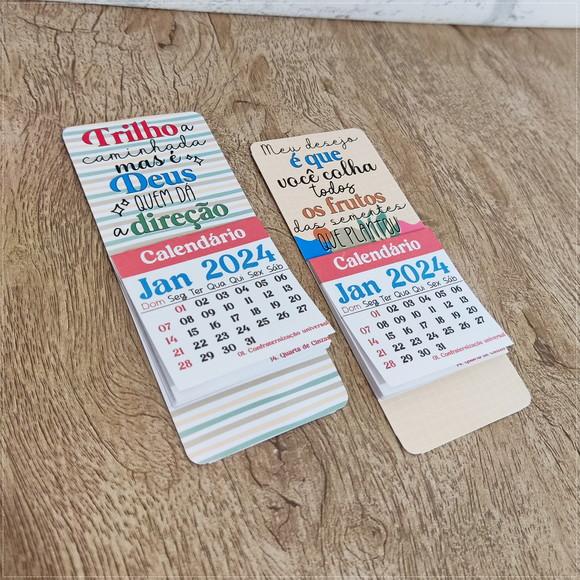 Trilho a
caminhada
mas é
Deus
QUEM DÁ
a direção
Calendário
Jan 2024
Dom Seg Ter Qua Qui Sex Sáb
01 02 03 04 05 06
07 08 09 10 11 12 13
14 15 16 17 18 19 20
21 22 23 24 25 26 27
28 29 30 31
01. Confraternização universal
14. Quarta de Cinzas
Meu desejo
é que
você colha
todos
os frutos
das sementes
QUE PLANTOU
Calendário
Jan 2024
Dom Seg Ter Qua Qui Sex Sáb
01 02 03 04 05 06
07 08 09 10 11 12 13
14 15 16 17 18 19 20
21 22 23 24 25 26 27
28 29 30 31
01. Confraternização universal